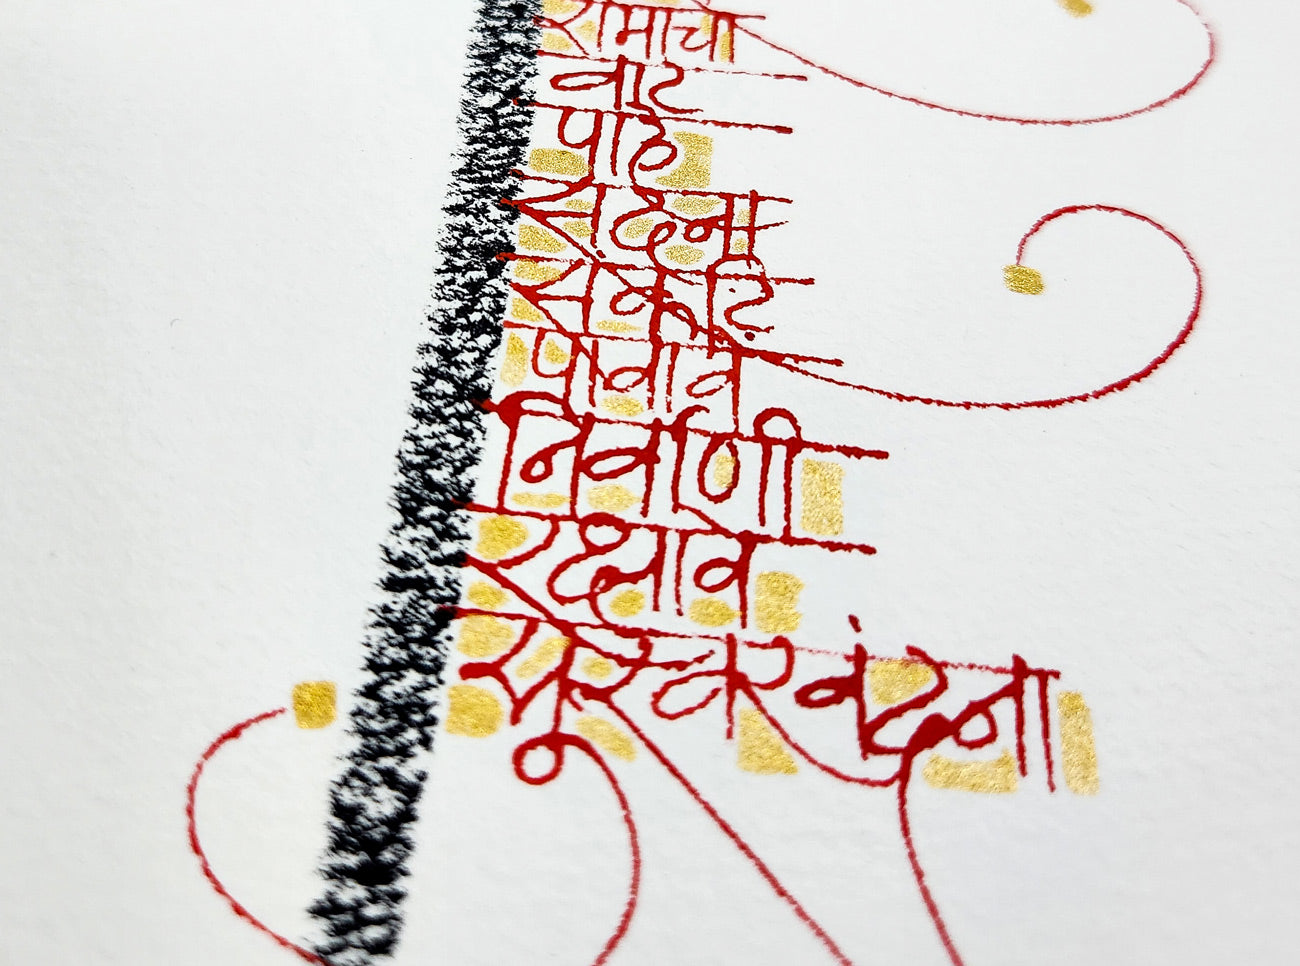 रामाचा
वाट
पाहे
सदना
संकटि
पावावे
निर्वाणी
रक्षावे
सुरवरवंदना